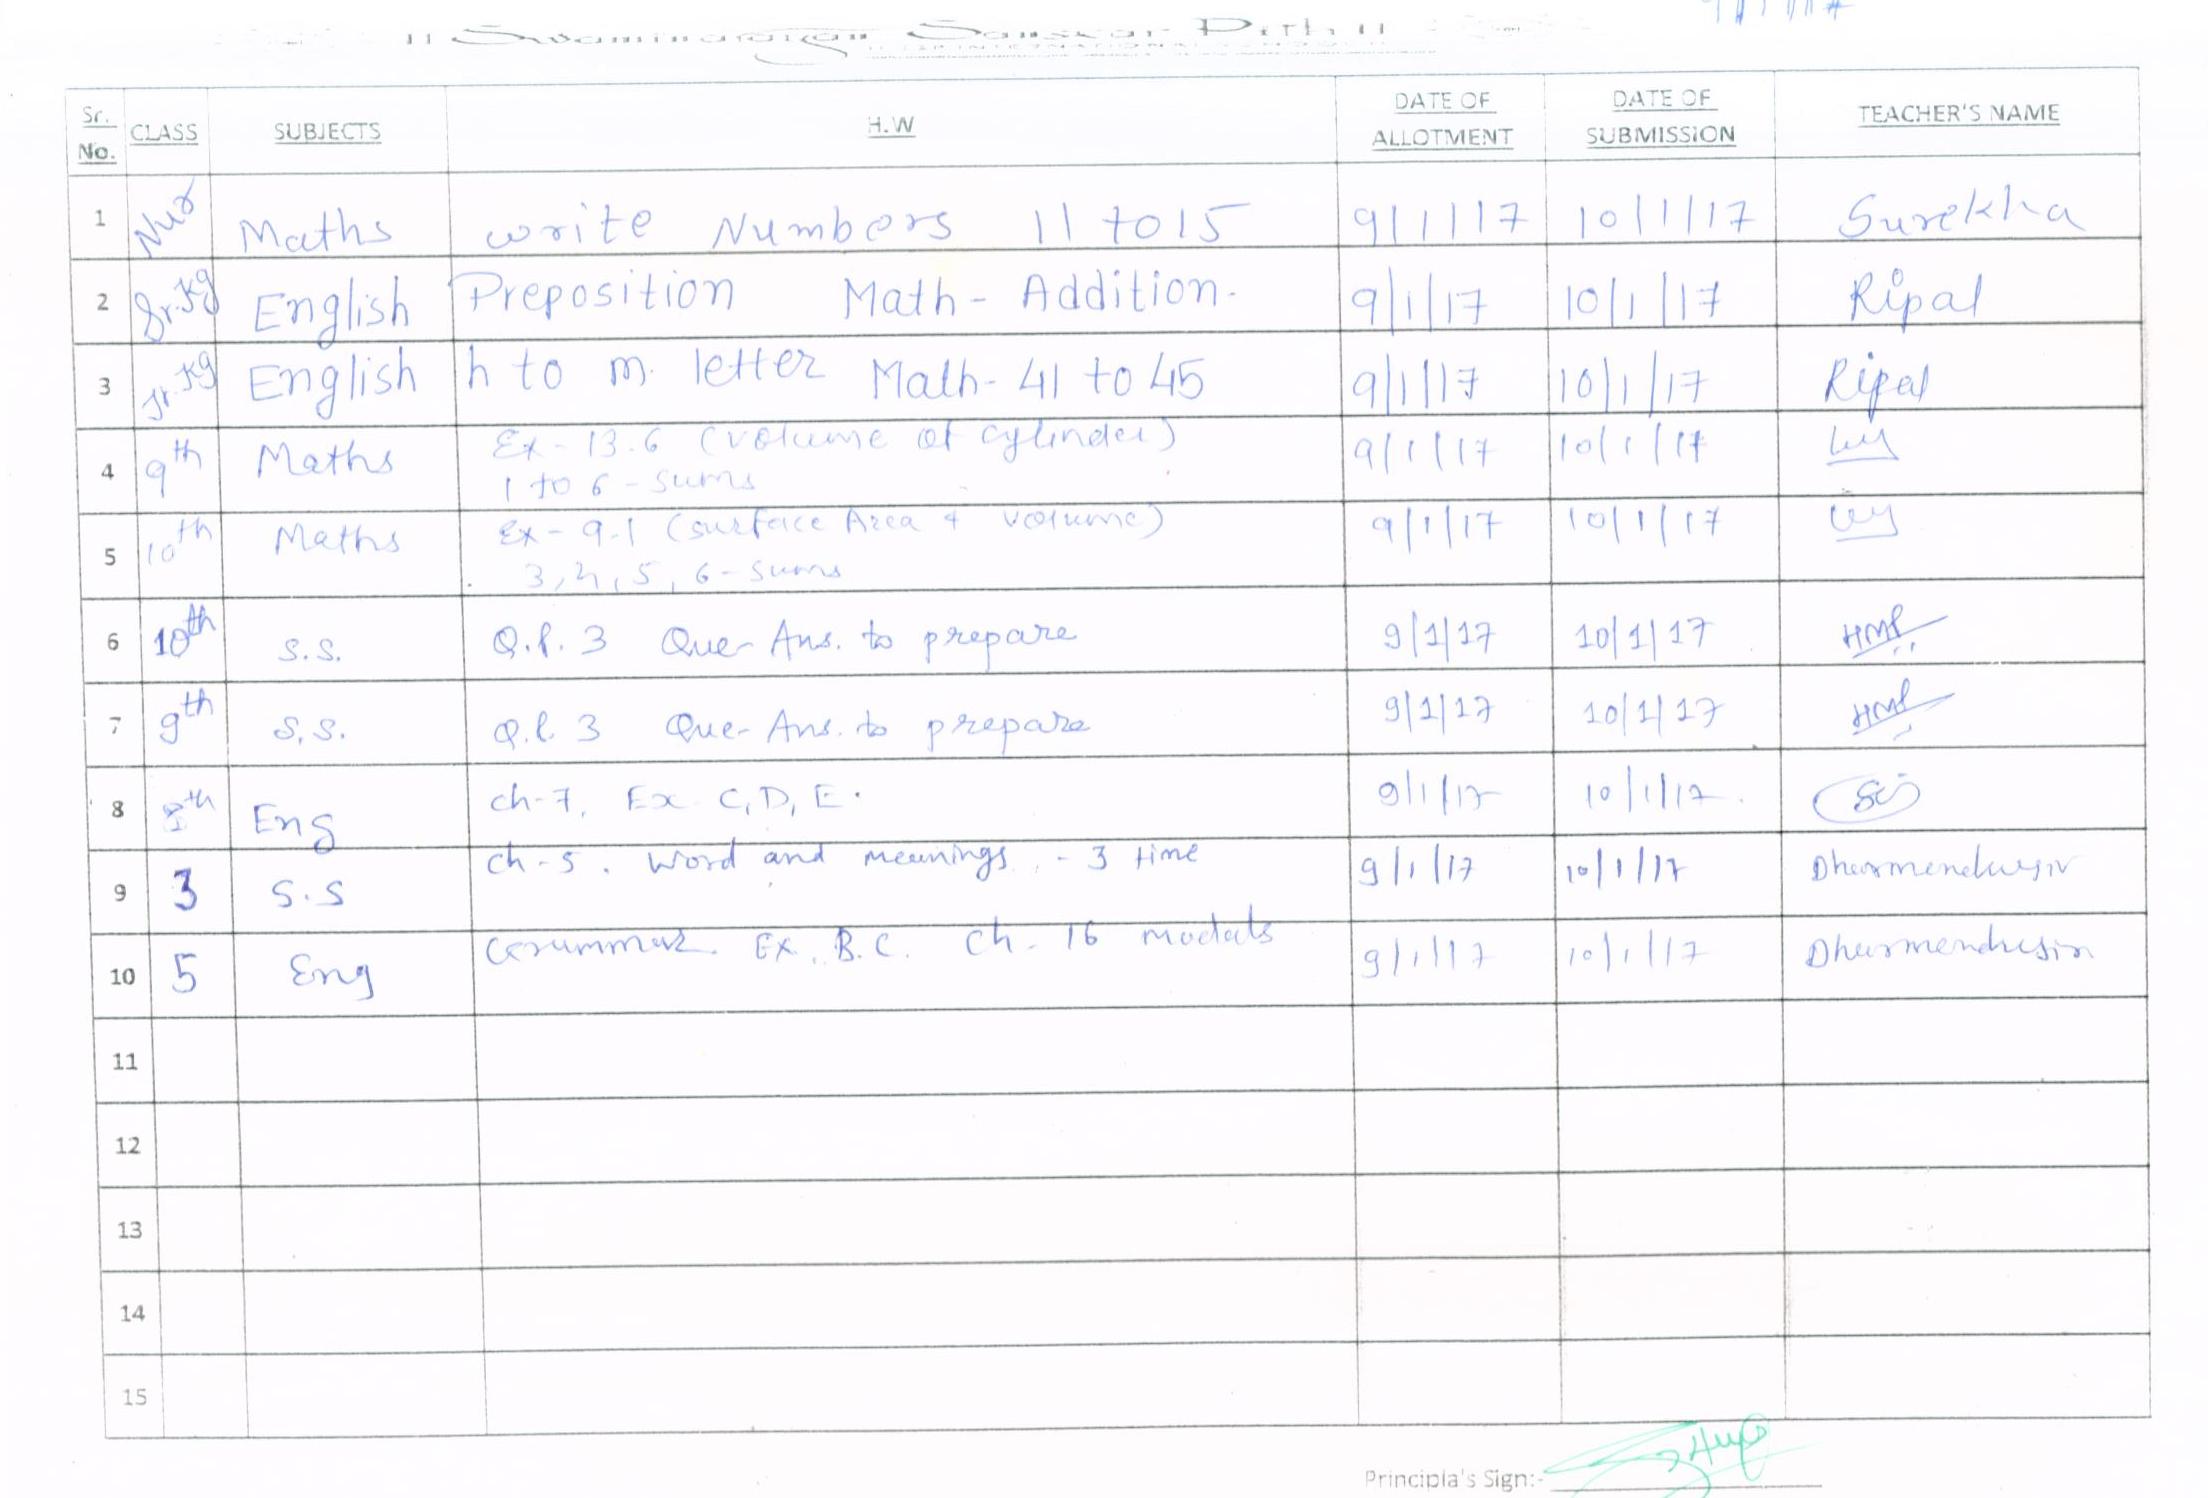 11 Swaminarayan Sanskar Pith 11
Sr. No. CLASS SUBJECTS H.W DATE OF ALLOTMENT DATE OF SUBMISSION TEACHER'S NAME
1 Nur Maths write Numbers 11 to 15 9/1/17 10/1/17 Surekha
2 Sr.Kg English Preposition Math- Addition. 9/1/17 10/1/17 Ripal
3 Jr.Kg English h to m letter Math- 41 to 45 9/1/17 10/1/17 Ripal
4 9th Maths Ex-13.6 (volume of cylinder) 9/1/17 10/1/17
1 to 6 - sums
5 10th Maths Ex-9.1 (surface Area & volume) 9/1/17 10/1/17
3,4,5,6-sums
6 10th S.S. Q.P. 3 Que-Ans. to prepare 9/1/17 10/1/17 HMP
7 9th S.S. Q.P. 3 Que-Ans. to prepare 9/1/17 10/1/17 HMP
8 8th Eng ch-7, Ex C,D,E. 9/1/17 10/1/17.
9 3 S.S ch-5. word and meanings - 3 time 9/1/17 10/1/17 Dharmendrasir
10 5 Eng Grammar. Ex. B.C. Ch-16 modals 9/1/17 10/1/17 Dharmendrasir
11
12
13
14
15
Principla's Sign:-